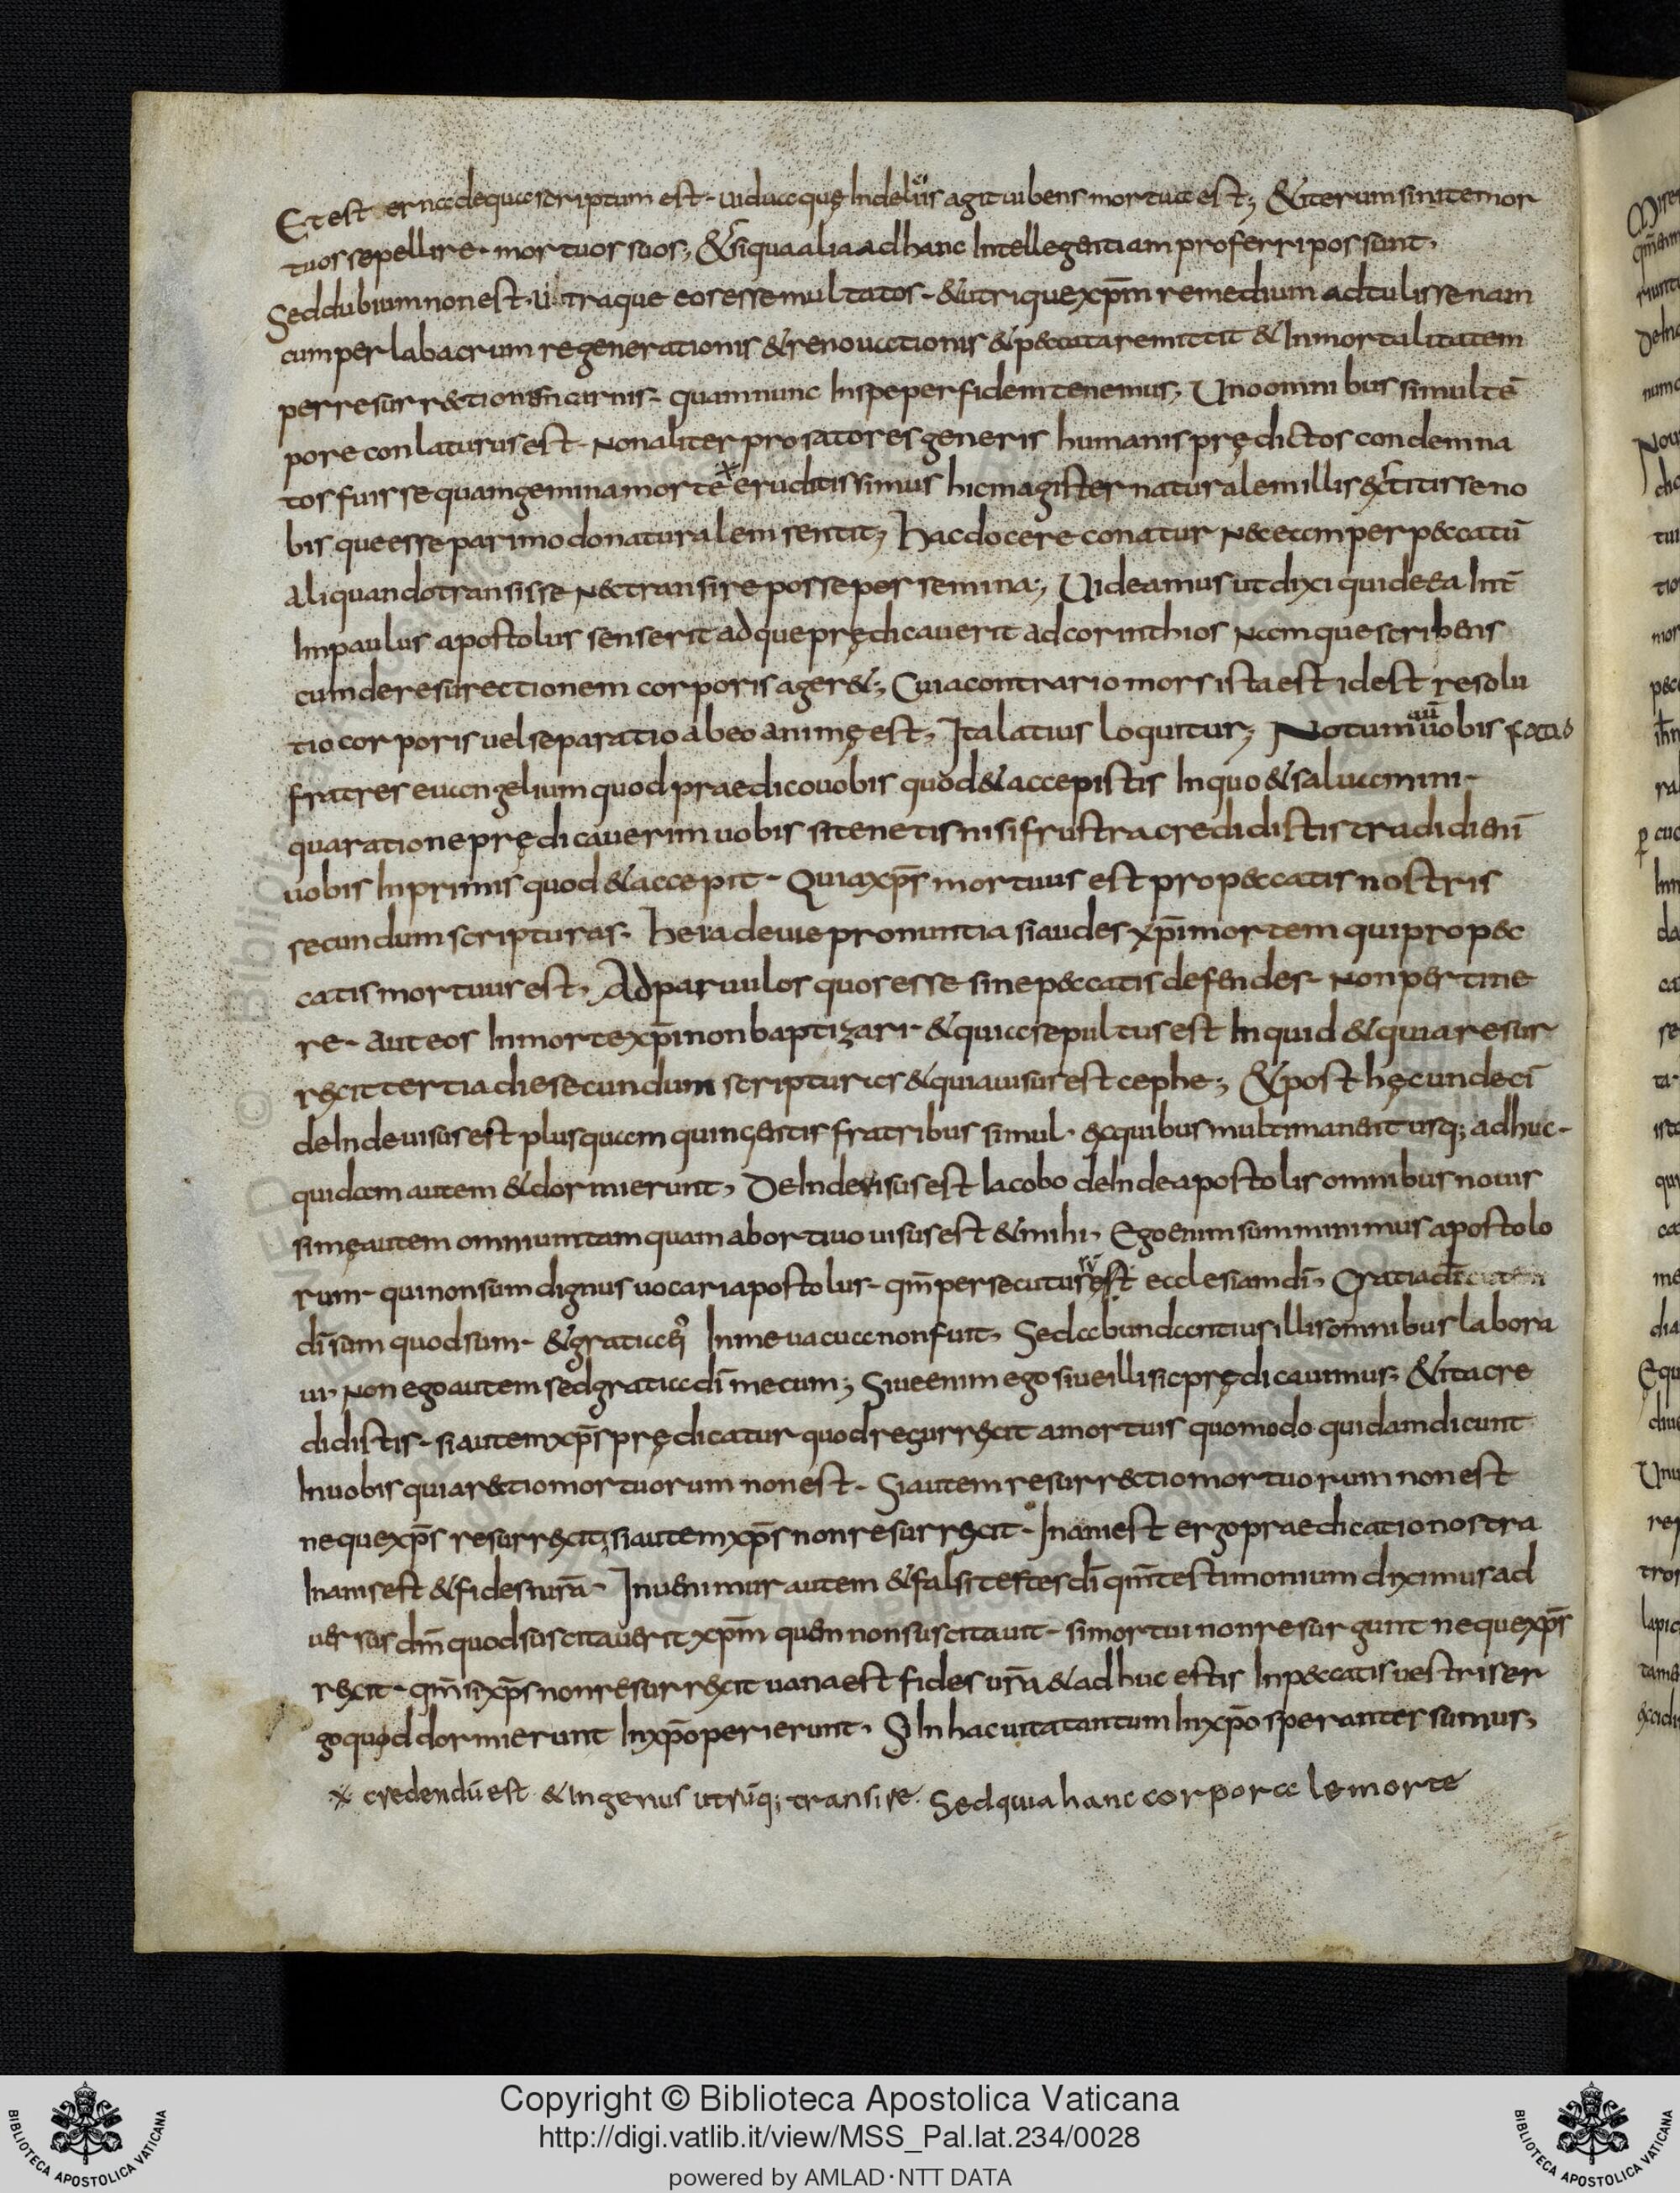 Et est erna de qua scriptum est. uidua quę In deliis agit uibens mortua est; & iterum sinite mor
tuos sepellire. mortuos suos; & si qua alia ad hanc Intellegentiam proferri possunt.
Sed dubium non est. utraque eos esse multatos. & utrique xp̄m remedium adtulisse nam
cum per labacrum regenerationis & renouationis & peccata remittit & Inmortalitatem
per resurrectionem carnis. quam nunc In spe per fidem tenemus; Uno omnibus simul tē
pore conlaturus est. Non aliter pro satores generis humanis prędictos condemna
tos fuisse quam gemina morte eruditissimus hic magister naturalem illis extitisse no
bisque esse pari modo naturalem sentit; hac docere conatur Nec eam per peccatū
aliquando transisse Nec transire posse per semina; Uideamus ut dixi quid ea Int
Im paulus apostolus senserit adque prędicauerit ad corinthios Namque scribens
cum de resurectionem corporis ager&; Cui a contrario mors ista est id est resolu
tio corporis uel separatio ab eo animę est. Ita latius loquitur; Notum aū uobis facio
fratres euangelium quod praedico uobis quod & accepistis In quo & saluamini.
qua ratione prędicauerim uobis si tenetis nisi frustra credidistis tradidi eni
uobis In primis quod & accepit. Quia xp̄s mortuus est pro peccatis nostris
secundum scripturas. heia deuie pronuntia si audes xp̄i mortem qui pro pec
catis mortuus est. Ad paruulos quos esse sine peccatis defendes. Non pertine
re. aut eos In morte xp̄i non baptizari. & quia sepultus est In quid & quia resur
rexit tertia die secundum scripturas & quia uisus est cephe; & post hęc undeci
deInde uisus est plus quam quingentis fratribus simul. ex quibus multi manent usq; adhuc.
quidam autem & dormierunt. DeInde uisus est Iacobo deInde apostolis omnibus nouis
simę autem omnium tamquam abortiuo uisus est & mihi. Ego enim sum minimus apostolo
rum. qui non sum dignus uocari apostolus. qm̄ persecutus est ecclesiam dī. Gratia dī
dī sum quod sum. & gratia eʼ In me uacua non fuit. Sed abundantius illis omnibus labora
ui. Non ego autem sed gratia dī mecum; Siue enim ego siue illi sic prędicauimus. & ita cre
didistis. si autem xp̄s prędicatur quod resurrexit a mortuis quomodo quidam dicunt
In uobis quia rectio mortuorum non est. Si autem resurrectio mortuorum non est
neque xp̄s resurrexit; si autem xp̄s non resurrexit. Inanis est ergo praedicatio nostra
Inanis est & fides nr̄a. Inuenimur autem & falsi testes dī qm̄ testimonium diximus ad
uersus dm̄ quod suscitauerit xp̄m quem non suscitauit. si mortui non resurgunt neque xp̄s
rexit. qm̄ si xp̄s non resurrexit uana est fides ur̄a & adhuc estis In peccatis uestris er
go quod dormierunt In xp̄o perierunt. Si In hac uita tantum In xp̄o sperantes sumus;
x credendū est & In genus utrūq; transire. Sed quia hanc corporale morte
Copyright © Biblioteca Apostolica Vaticana
http://digi.vatlib.it/view/MSS_Pal.lat.234/0028
powered by AMLAD·NTT DATA
BIBLIOTECA APOSTOLICA VATICANA
BIBLIOTECA APOSTOLICA VATICANA